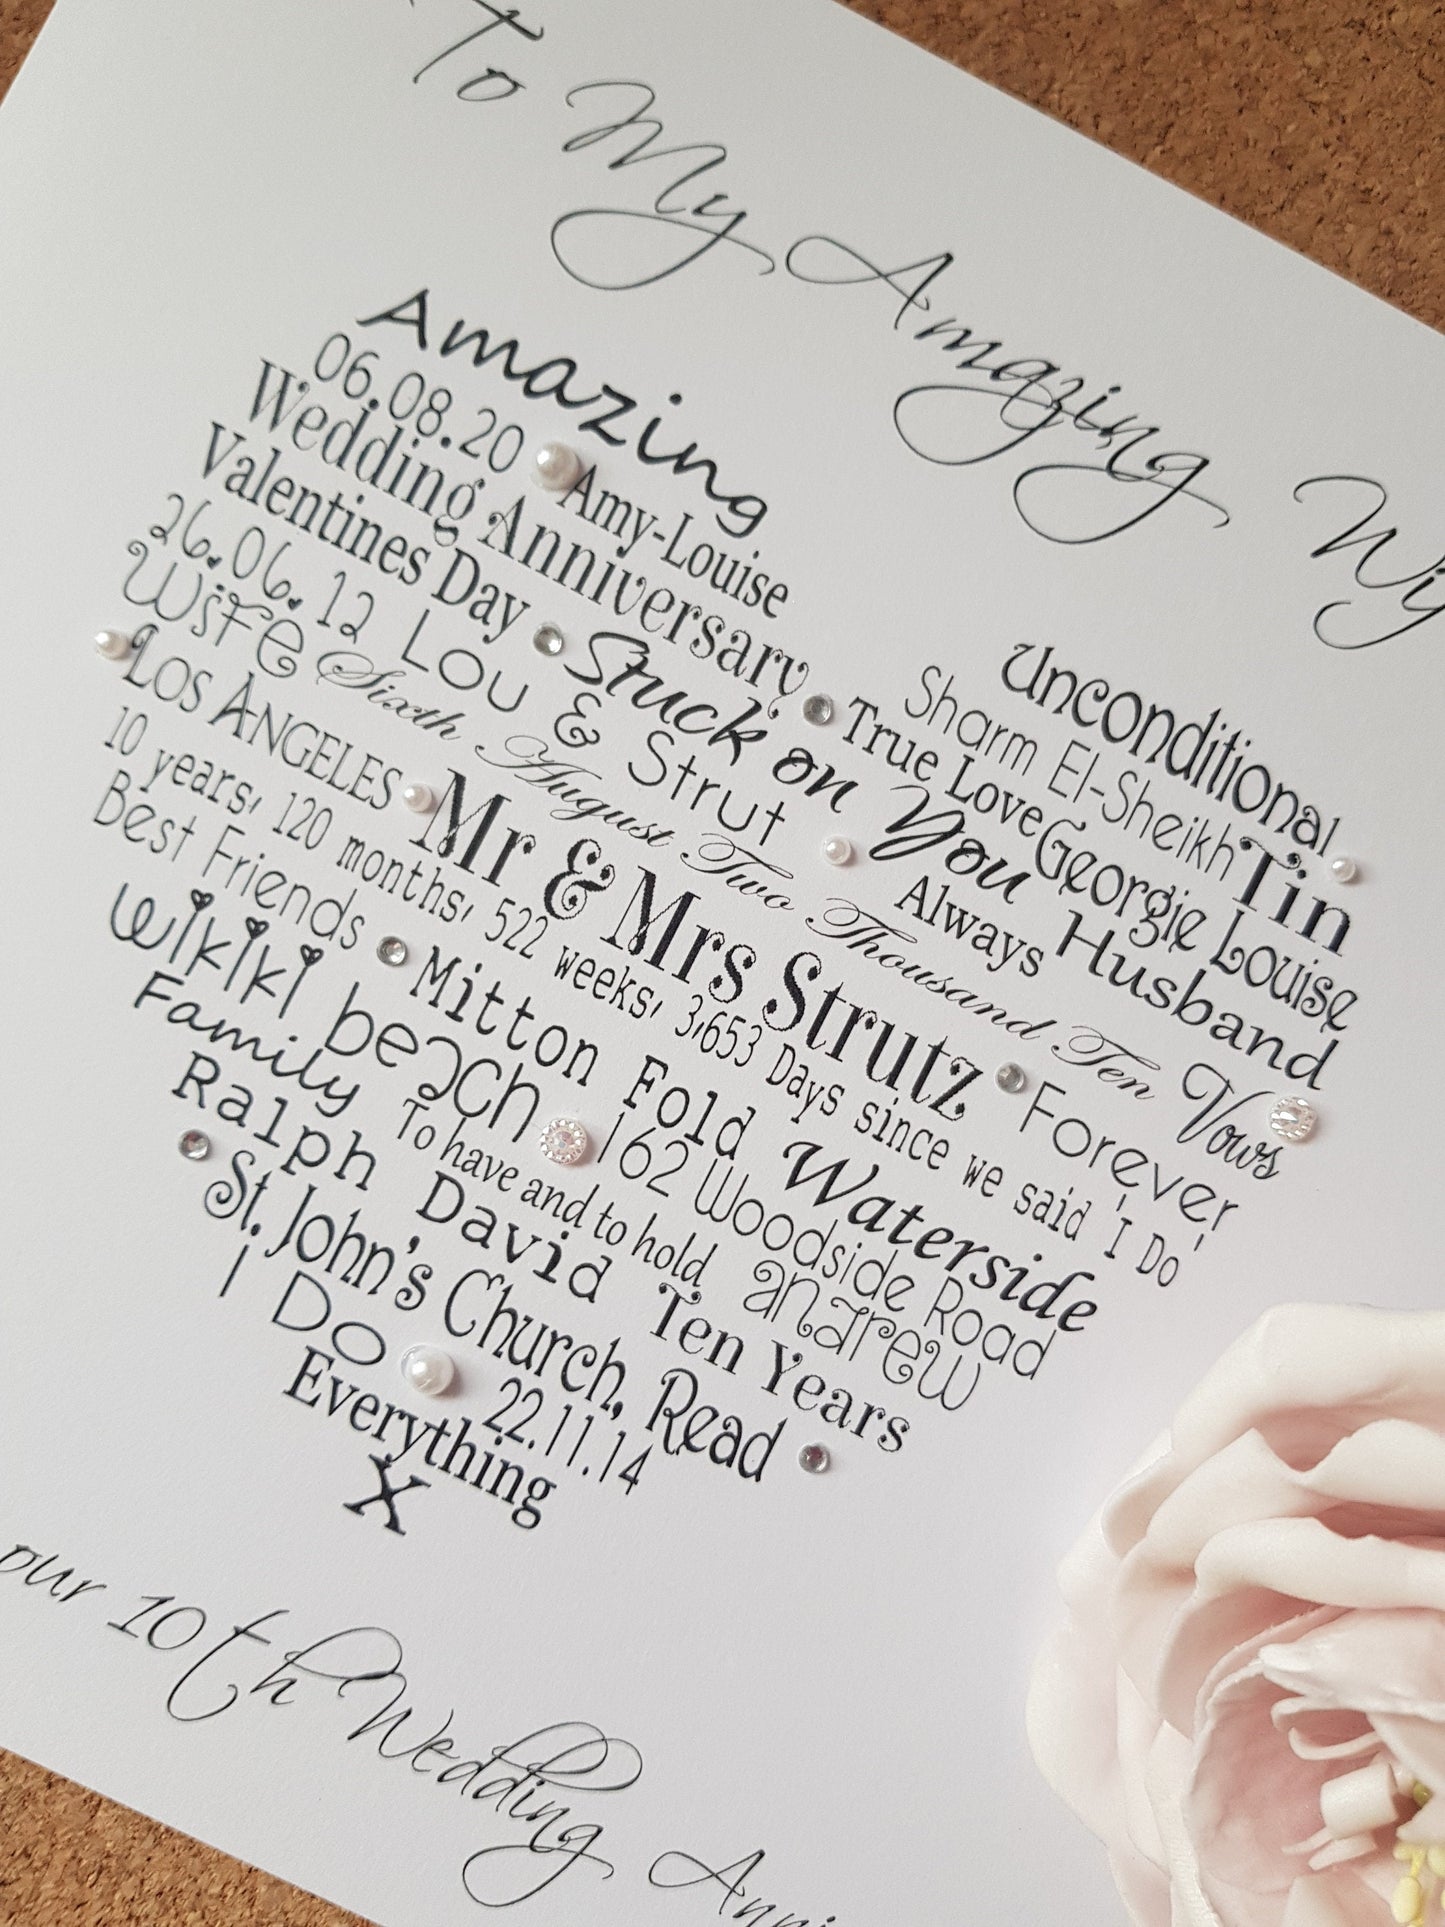 To My Amazing Wif
Amazing
Unconditional
06.08.20 Amy-Louise
Sharm El-Sheikh Tin
Wedding Anniversary True Love Georgie Louise
Valentines Day Stuck on You Husband
26.06.12 Lou & Strut Always
Wife Sixth August Two Thousand Ten Vows
Los Angeles Mr & Mrs Strutz Forever
10 years, 120 months, 522 weeks, 3,653 Days since we said 'I Do'
Best Friends Mitton Fold Waterside
Wikiki beach 162 Woodside Road
Family To have and to hold andrew
Ralph David Ten Years
St. John's Church, Read
I Do 22.11.14
Everything
X
our 10th Wedding Anni